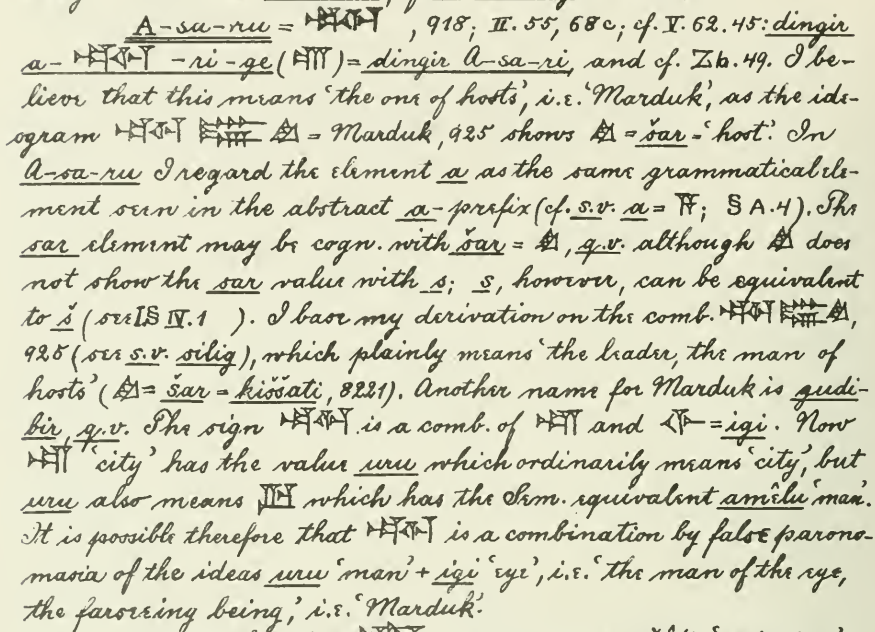 A-sa-ru = , 918; II. 55, 68c; cf. V. 62. 45: dingir
a- -ri-ge ( ) = dingir A-sa-ri, and cf. Zb. 49. I be-
lieve that this means 'the one of hosts', i.e. 'Marduk', as the ide-
ogram = Marduk, 925 shows = šar = 'host'. In
A-sa-ru I regard the element a as the same grammatical ele-
ment seen in the abstract a-prefix (cf. s.v. a = 𒀀; § A. 4). The
sar element may be cogn. with šar = , q.v. although does
not show the sar value with s; s, however, can be equivalent
to š (see § IV. 1 ). I base my derivation on the comb. ,
925 (see s.v. silig), which plainly means 'the leader, the man of
hosts' ( = šar = kiššati, 8221). Another name for Marduk is gudi-
bir, q.v. The sign is a comb. of and = igi. Now
'city' has the value uru which ordinarily means 'city', but
uru also means which has the Sem. equivalent amêlu 'man'.
It is possible therefore that is a combination by false parono-
masia of the ideas uru 'man' + igi 'eye', i.e. 'the man of the eye,
the farseeing being,' i.e. 'Marduk'.